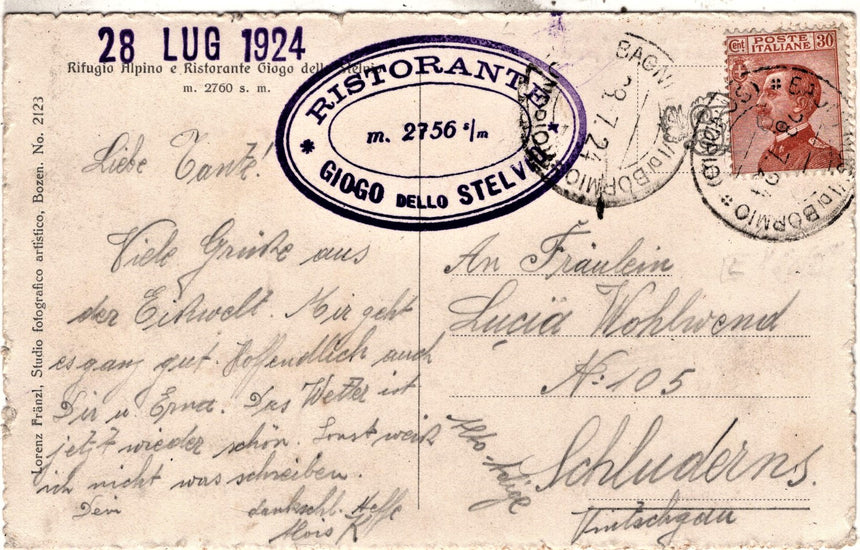 28 LUG 1924
Rifugio Alpino e Ristorante Giogo dello Stelvio
m. 2760 s. m.
RISTORANTE
m. 2756 s/m
GIOGO DELLO STELVIO
BAGNI DI BORMIO
28.7.24
POSTE ITALIANE
Cent. 30
28.7.24
BAGNI DI BORMIO
Lorenz Fränzl, Studio fotografico artistico, Bozen. No. 2123
Liebe Tante!
Viele Grüße aus
der Eiswelt. Mir geht
es ganz gut. Hoffendlich auch
Dir u. Erna. Das Wetter ist
jetzt wieder schön. Sonst weiß
ich nicht was schreiben.
Dein dankschl. Neffe
Alois
An Fräulein
Lucia Wohlwend
No 105
Schluderns.
Vintschgau
Alto-Adige